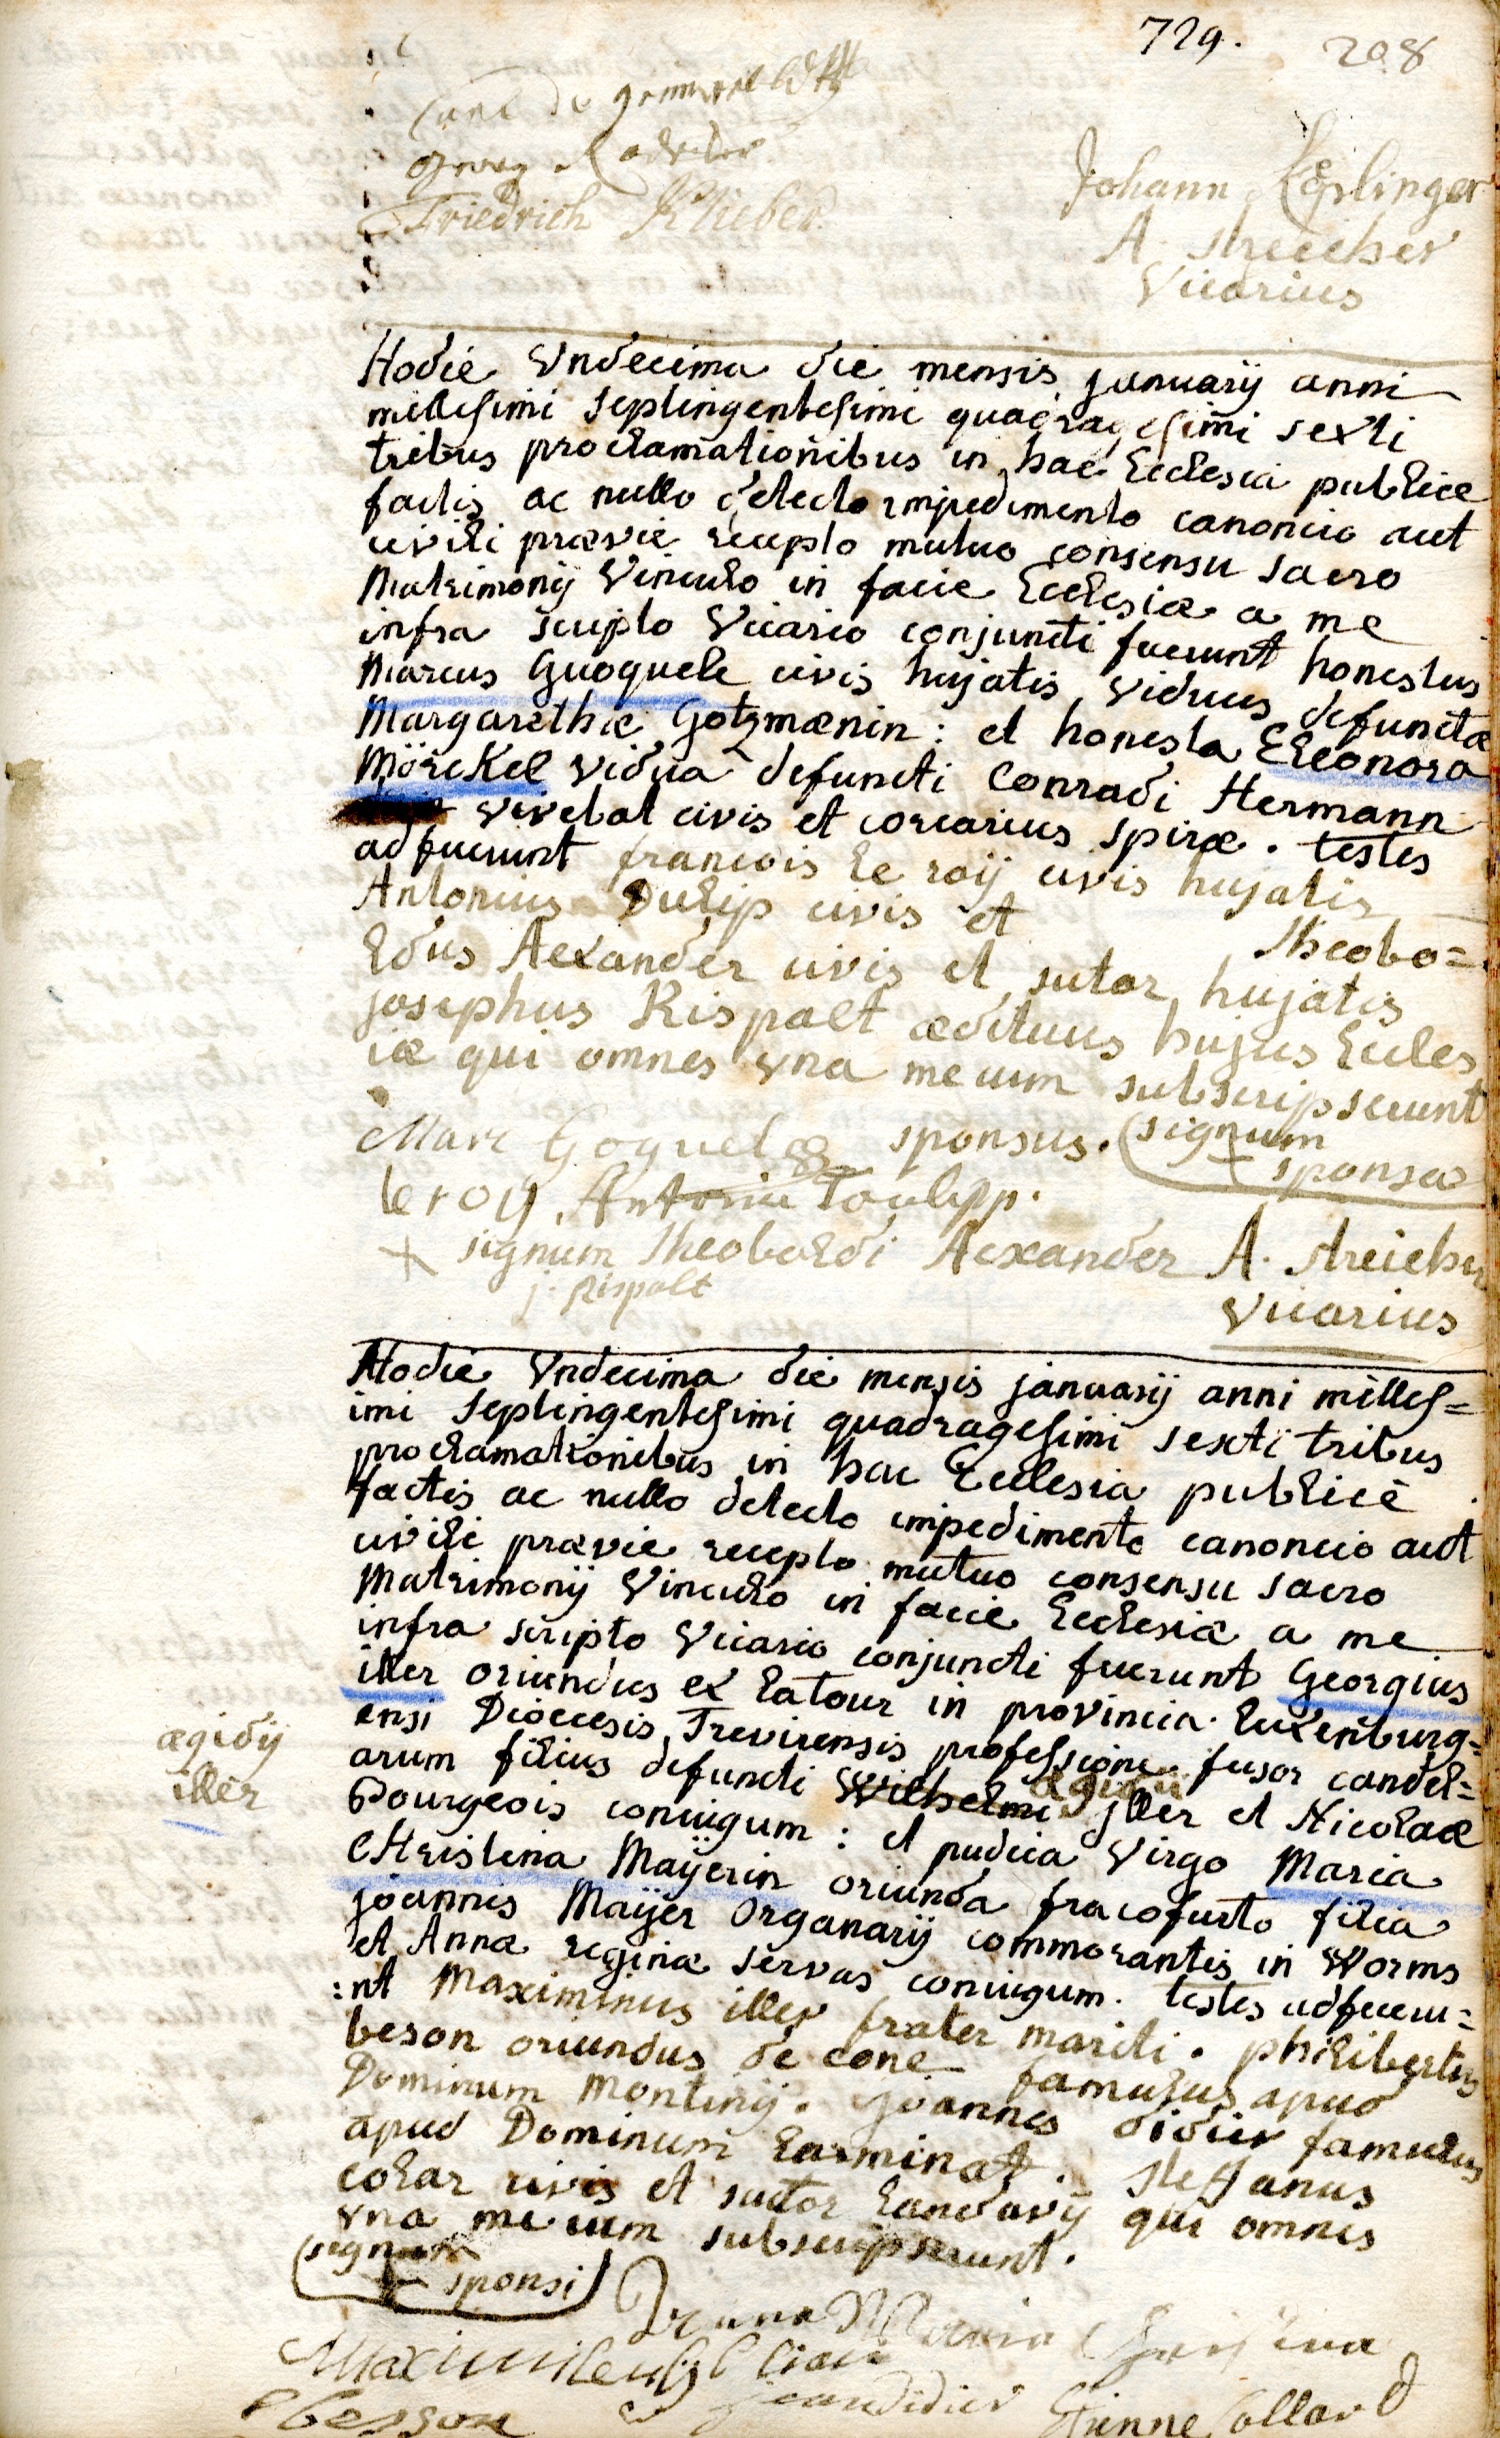 729. 208
Friedrich Klieber
Johann
A. Streicher
Vicarius
Hodie Vndecima die mensis januarij anni
millesimi septingentesimi quadragesimi sexti
tribus proclamationibus in hac Ecclesia publice
factis ac nullo detecto impedimento canonico aut
civili prævie recepto mutuo consensu sacro
Matrimonij Vinculo in facie Ecclesiæ a me
infra scripto Vicario conjuncti fuerunt honestus
Marcus Guoquele civis hujatis viduus defunctæ
Margarethæ Gotzmænin : et honesta Eleonora
Mörckel vidua defuncti Conradi Hermann
vivebat civis et coriarius spiræ . testes
adfuerunt francois le roij civis hujatis
Antonius Dulip civis et Theobo=
ldus Alexander civis et sutor hujatis
josephus Rispalt ædituus hujus Eccles
iæ qui omnes vna mecum subscripserunt
Marc Goquel sponsus. (signum
+ sponsæ
leroy Antoni Toulipp.
+ signum Theobaldi Alexander A. Streicher
j. Rispalt
Vicarius
Hodie Vndecima die mensis januarij anni milles=
imi septingentesimi quadragesimi sexti tribus
proclamationibus in hac Ecclesia publicè
factis ac nullo detecto impedimento canonico aut
civili prævie recepto mutuo consensu sacro
Matrimonij Vinculo in facie Ecclesiæ a me
infra scripto Vicario conjuncti fuerunt Georgius
iller oriundus ex latour in provincia luxenburg=
ensi Dioecesis Trevirensis professione fusor candel=
ægidij
iller
arum filius defuncti Wilhelmi ægidii jller et Nicolaæ
Bourgeois coniugum : et pudica Virgo Maria
Christina Maijerin oriunda fracofurto filia
joannis Maijer Organarij commorantis in Worms
et Annæ reginæ servas coniugum. testes adfueru=
:nt Maximinus iller frater mariti . philibertus
beson oriundus de cone famulus apud
Dominum Montinij. joannes didier famulus
apud Dominum Larminat. steffanus
colar civis et sutor landavij qui omnes
vna mecum subscripserunt.
(signum
+ sponsi)
Maria Christina
besson jean didier Etienne Collard